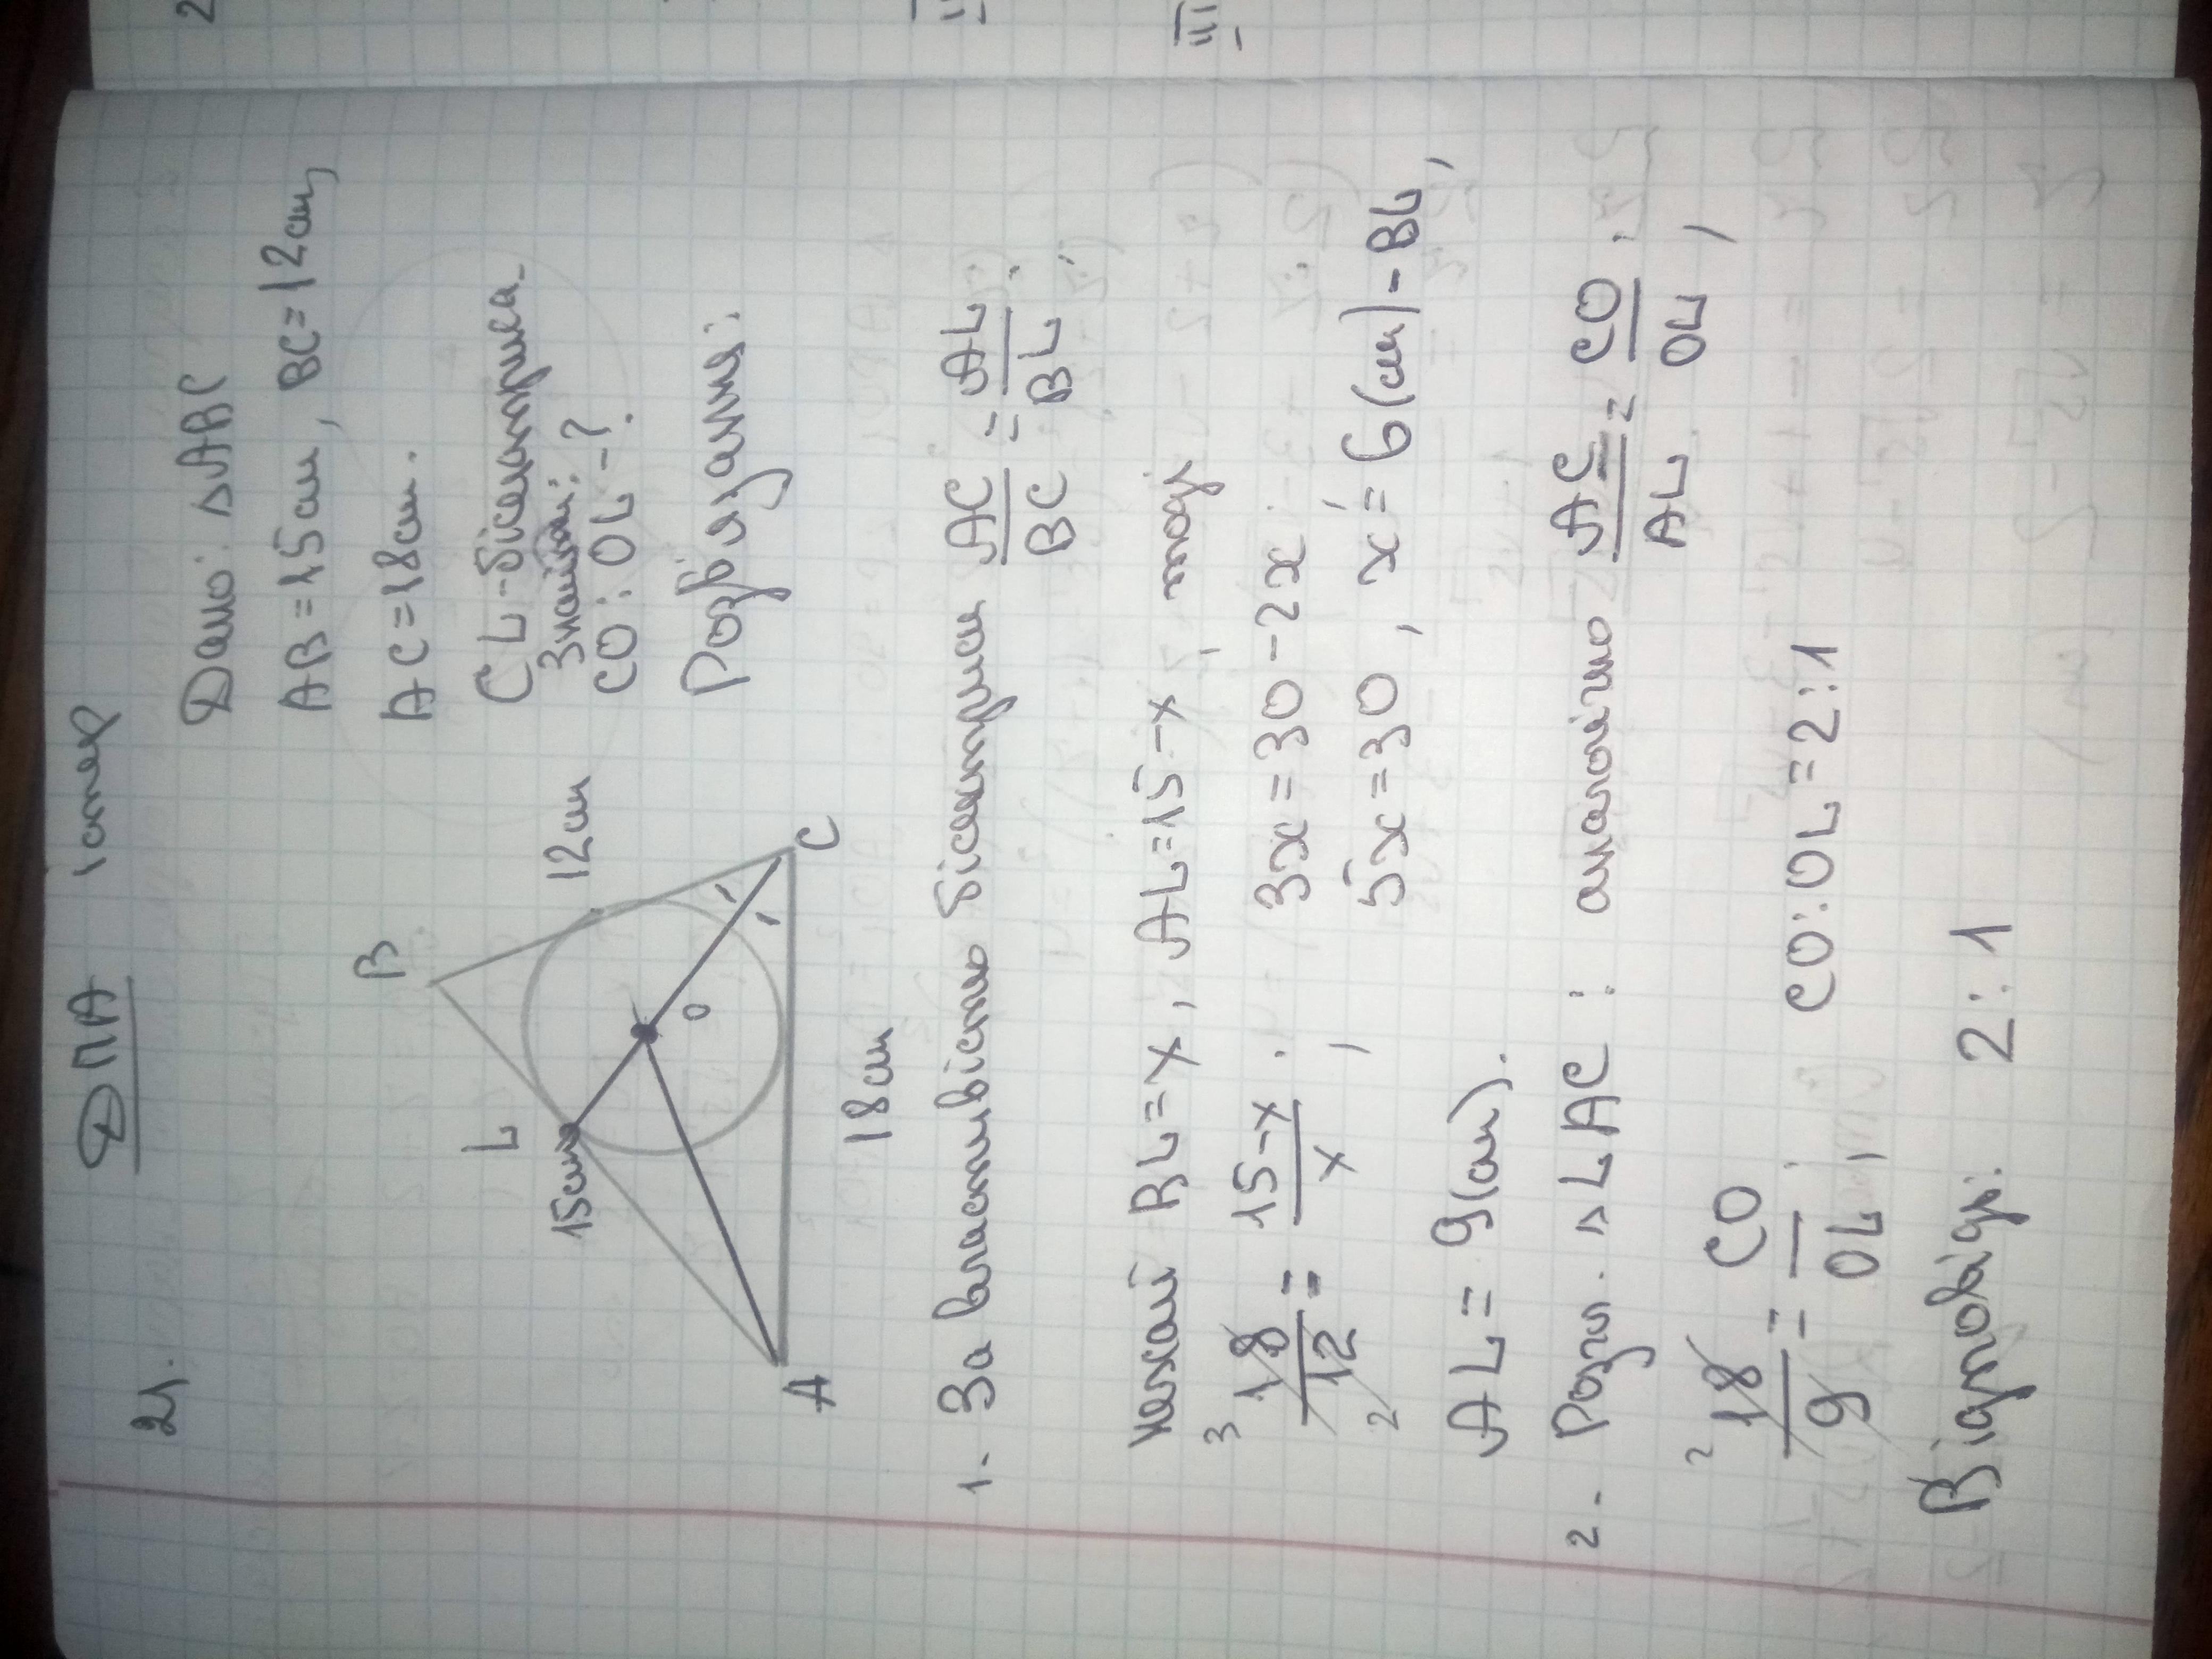 ДПА
21.
B
L
15см
12см
O
A
18см
C
Дано: △ABC
AB=15см, BC=12см,
AC=18см.
CL-бісектриса
Знайти:
CO:OL-?
Розв'язання:
1. За властивістю бісектриси AC/BC = AL/BL;
нехай BL=x, AL=15-x, тоді
3 18/12 2 = 15-x/x; 3x=30-2x
5x=30, x=6(см)-BL,
AL=9(см).
2. Розгл. △LAC: аналогічно AC/AL = CO/OL,
2 18/9 = CO/OL; CO:OL=2:1
Відповідь: 2:1